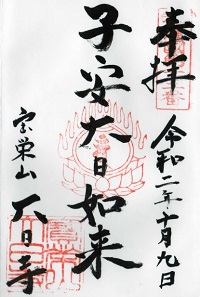 奉拝
令和二年十月九日
子安大日如来
宝栄山
大日寺